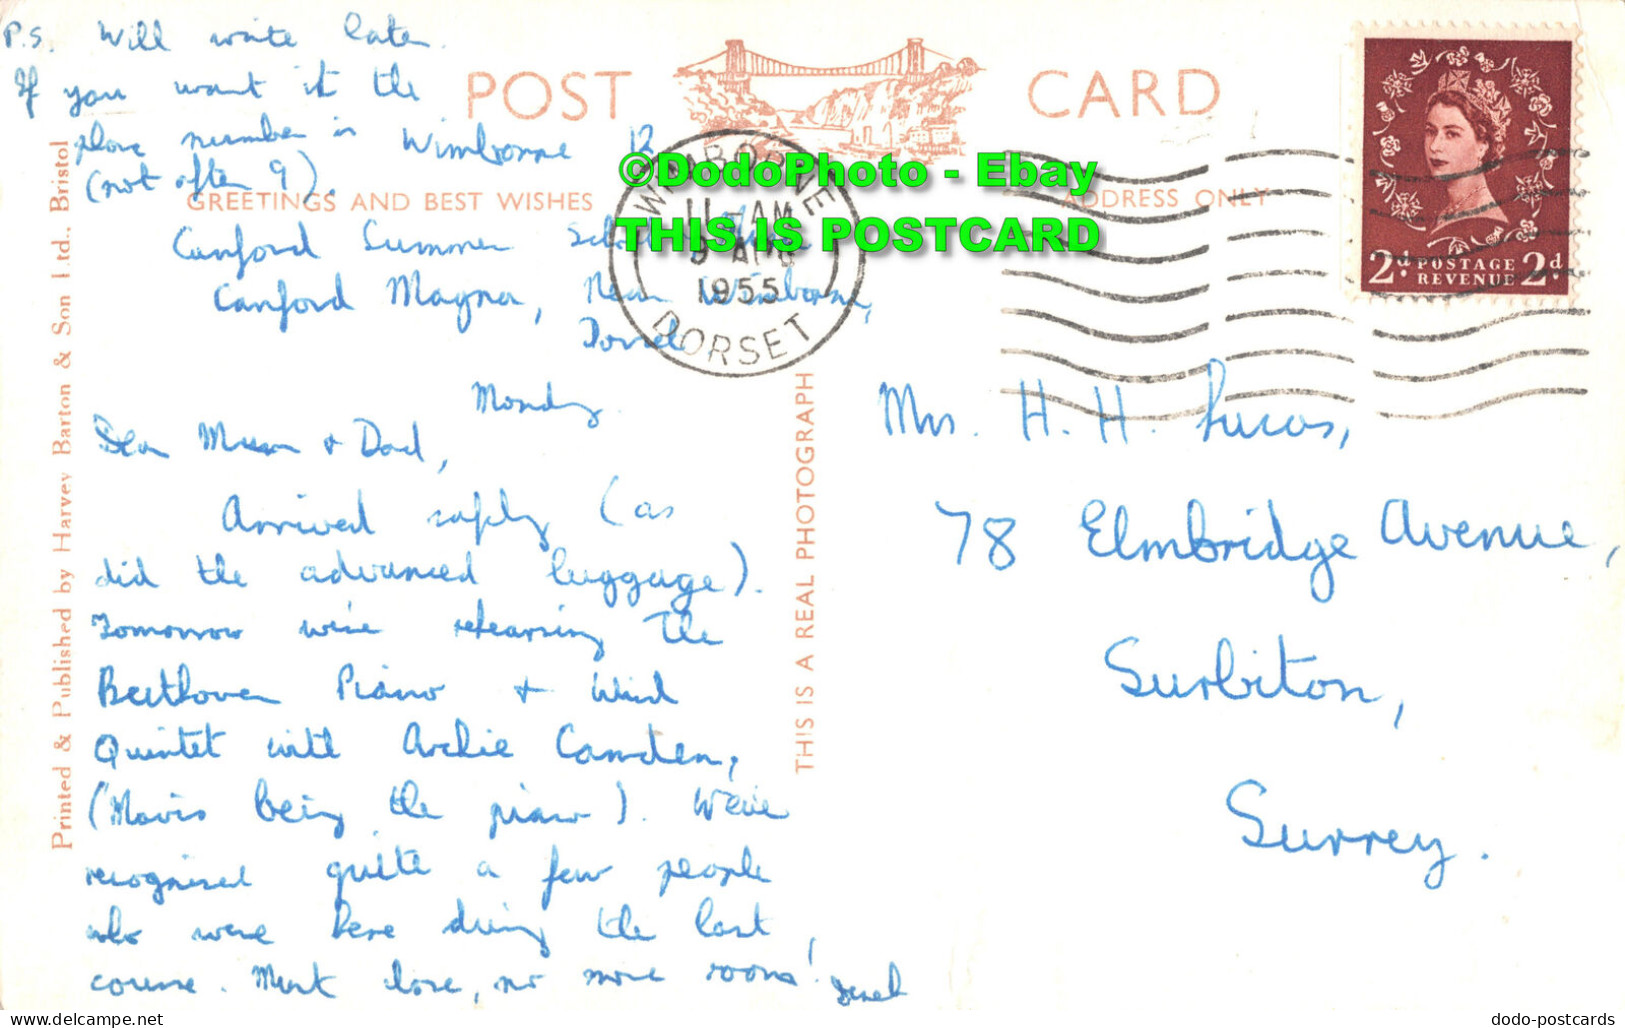 P.S. Will write later.
If you want it the
phone number is Wimborne 12
(not after 9).
POST CARD
©DodoPhoto - Ebay
THIS IS POSTCARD
GREETINGS AND BEST WISHES
ADDRESS ONLY
WIMBORNE
11-AM
9 AUG
1955
DORSET
2d. POSTAGE 2d
REVENUE
Canford Summer School
Canford Magna, Near Wimborne,
Dorset
Monday.
Dear Mum & Dad,
Arrived safely (as
did the advanced luggage).
Tomorrow we're rehearsing the
Beethoven Piano & Wind
Quintet with Archie Camden,
(Mavis being the piano). We've
recognised quite a few people
who were here during the last
course. Must close, no more room!
Derek
Mrs. H. H. Lucas,
78 Elmbridge Avenue,
Surbiton,
Surrey.
Printed & Published by Harvey Barton & Son Ltd., Bristol
THIS IS A REAL PHOTOGRAPH
dodo-postcards